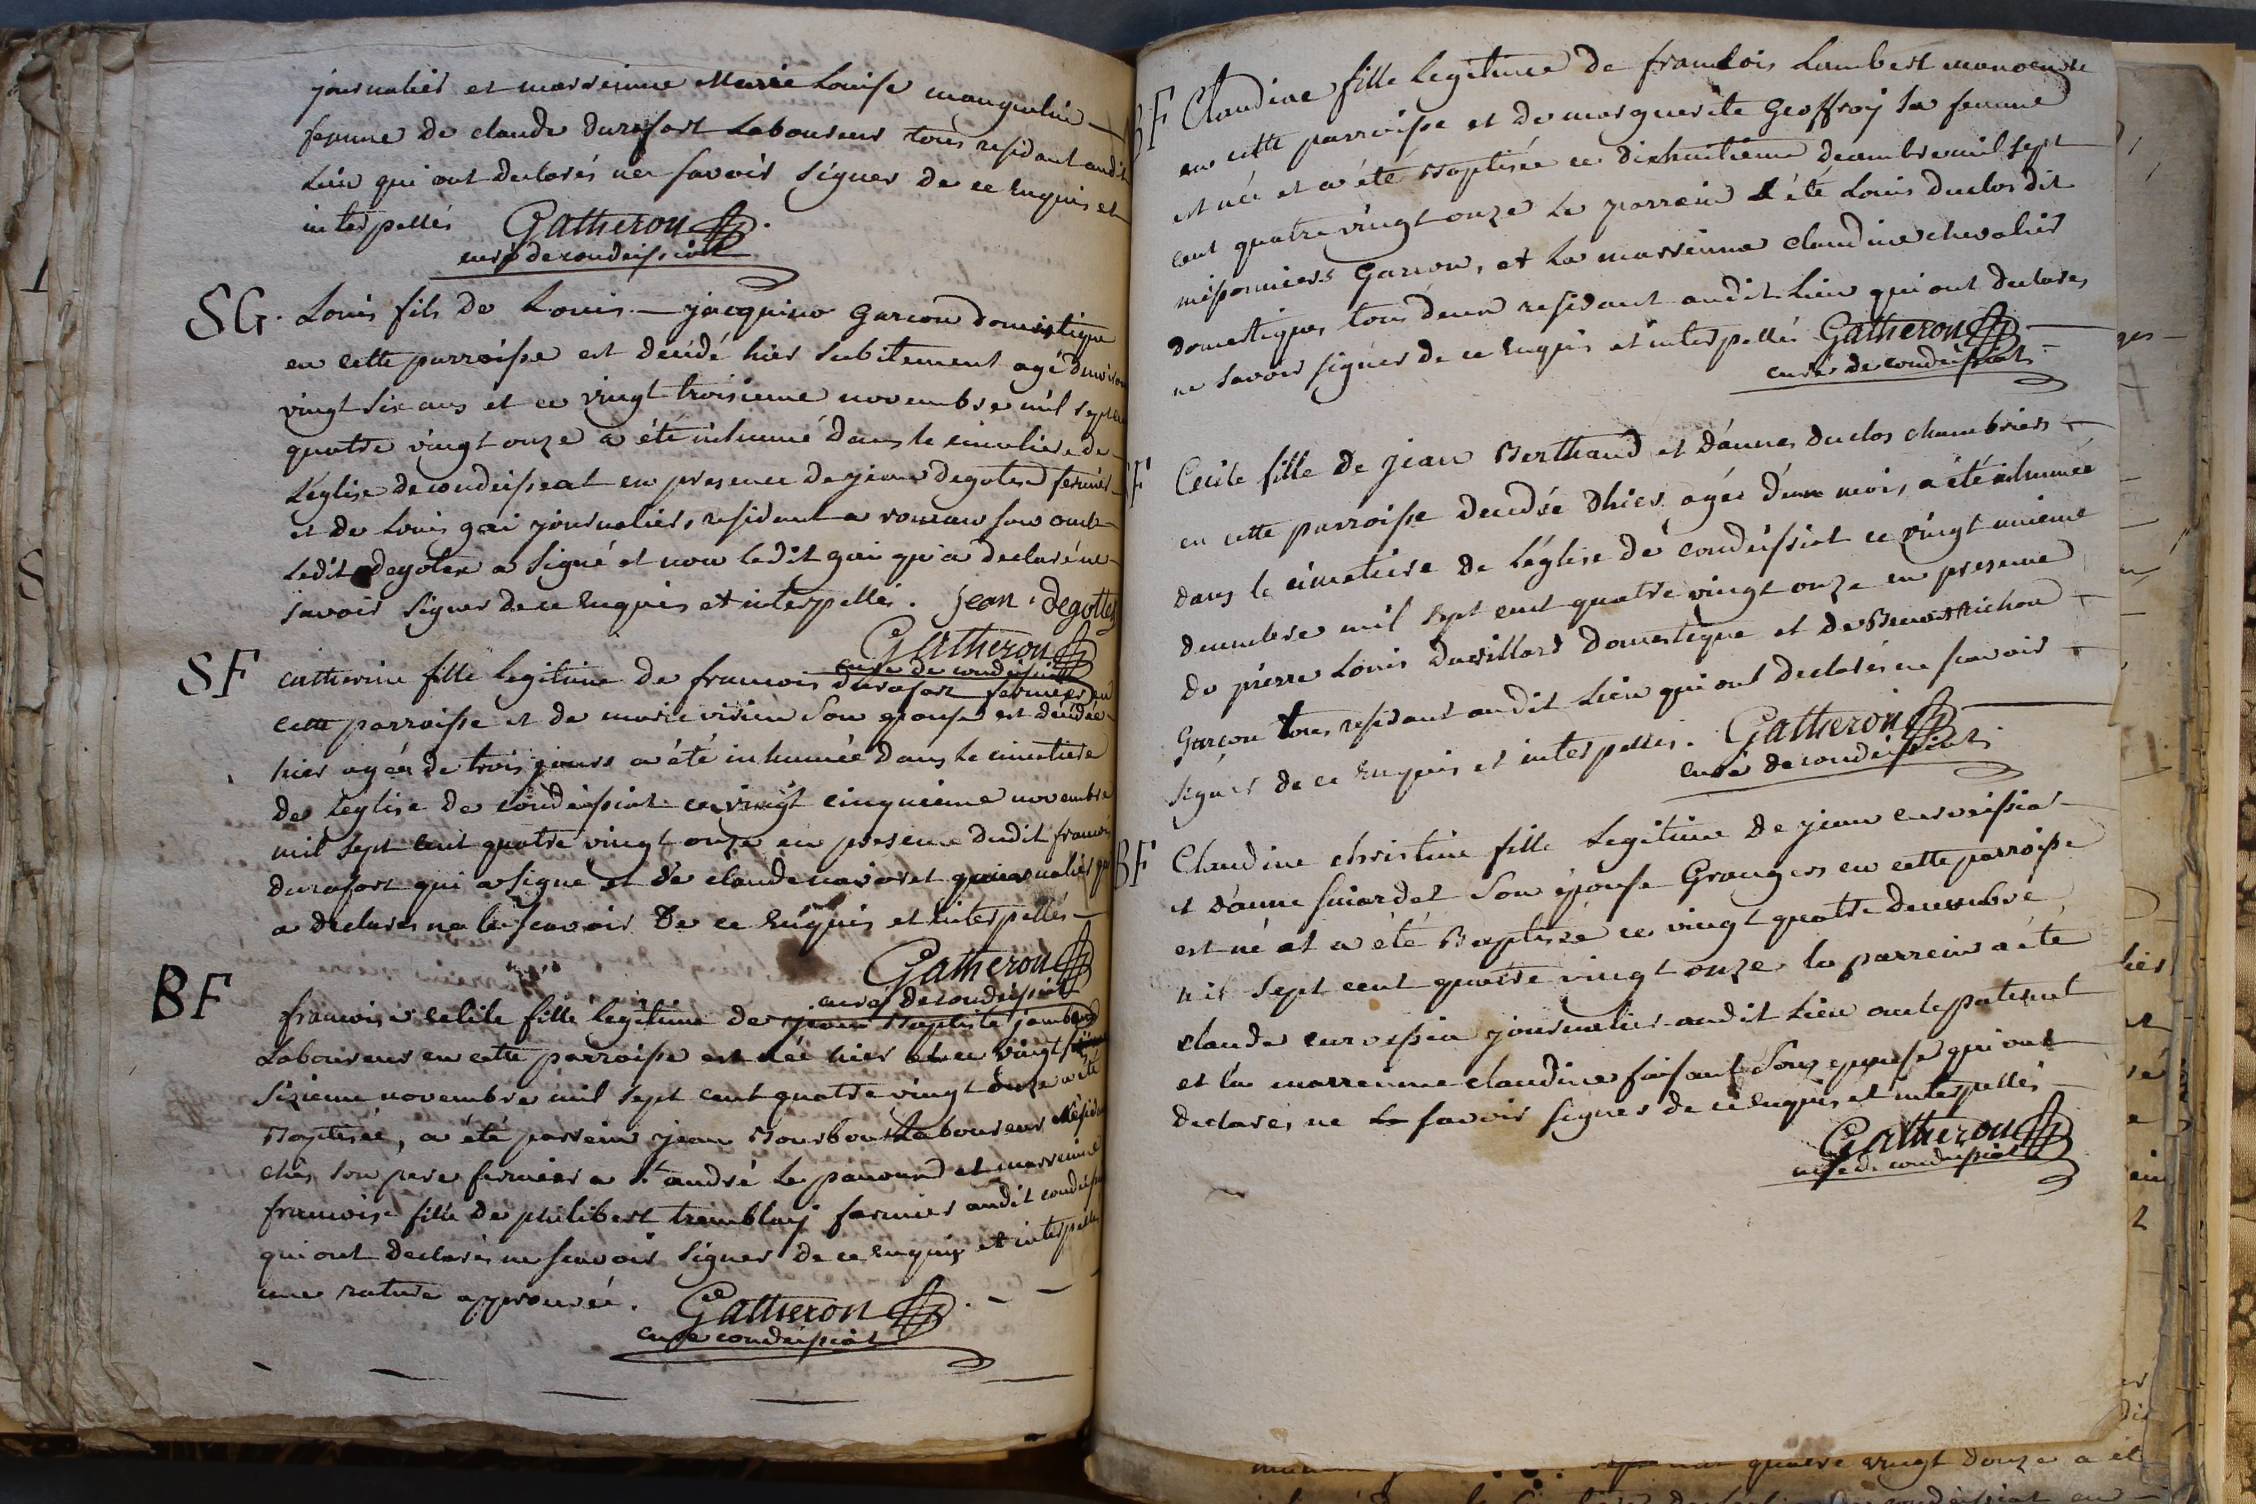 journalier et marreinne Marie Louise manguelin
femme de claude durafort Laboureur tous residant audit
Lieu qui ont declarés ne savoir signer de ce Enquis et
interpellés Gatheron
curé de condeissiat
SG. Louis fils de Louis jacquino Garcon domestique
en cette parroisse est decidé hier subitement agé d'environ
vingt six ans et ce vingt troisieme novembre mil sept cent
quatre vingt onze a été inhumé dans le cimetiere de
L'église de condeissiat en presence de jean degoter fermier
et de Louis gai journalier, residant a romans
Ledit degoter a signé et non ledit gai qu'a declaré ne
savoir signer de ce Enquis et interpellé. jean degottex
Gatheron
curé de condeissiat
SF catherine fille legitime de francois durafort fermier en
cette parroisse et de marie Son epouse est decidée
hier agée de trois jours a été inhumée dans le cimetiere
de leglise de condeissiat ce vingt cinquieme novembre
mil sept cent quatre vingt onze en presence dudit francois
durafort qui a signé et de claude journalier qui
a declarer ne le scavoir De ce Enquis et interpellés
Gatheron
curé de condeissiat
BF francoise Cecile fille legitime de jean Baptiste jambard
Laboureur en cette parroisse est née hier et ce vingt
sizieme novembre mil sept cent quatre vingt onze a été
Baptisée, a été parrein jean Bourbon Laboureur Residant
chés son pere fermier a St andré Le panoux et marreinne
francoise fille de philibert tremblay fermier audit condeissiat
qui ont declarés ne scavoir Signer de ce Enquis et interpellés
une rature approuvée. Gatheron
curé condeissiat
BF Claudine fille Legitime de francois Lambert manoeuvre
en cette parroisse et de marguerite Geoffroy sa femme
est née et a été Baptisée ce dixhuitieme decembre mil sept
cent quatre vingt onze Le parrein a été Louis duclos dit
Garcon, et La marreinne claudine chevalier
domestiques tous deux residant audit Lieu qui ont declarés
ne savoir signer de ce Enquis et interpellés Gatheron
curé de condeissiat
SF Cecile fille de jean Berthaud et d'anne duclos chambrier
en cette parroisse decedée d'hier agée d'un mois, a été inhumée
dans le cimetiere de l'église de condeissiat ce vingt unieme
decembre mil sept cent quatre vingt onze en presence
de pierre Louis duvillard Domestique et de Benoit Michon
Garcon tous residant audit Lieu qui ont declarés ne scavoir
signer de ce Enquis et interpellés. Gatheron
curé de condeissiat
BF Claudine christine fille Legitime de jean
et d'anne Son épouse Granger en cette parroisse
est né et a été Baptisée ce vingt quatre decembre
mil sept cent quatre vingt onze le parrein a été
claude journalier audit Lieu oncle paternel
et la marreinne claudine Son epouse qui ont
declarés ne Le savoir signer de ce Enquis et interpellés
Gatheron
curé de condeissiat
quatre vingt douze a été